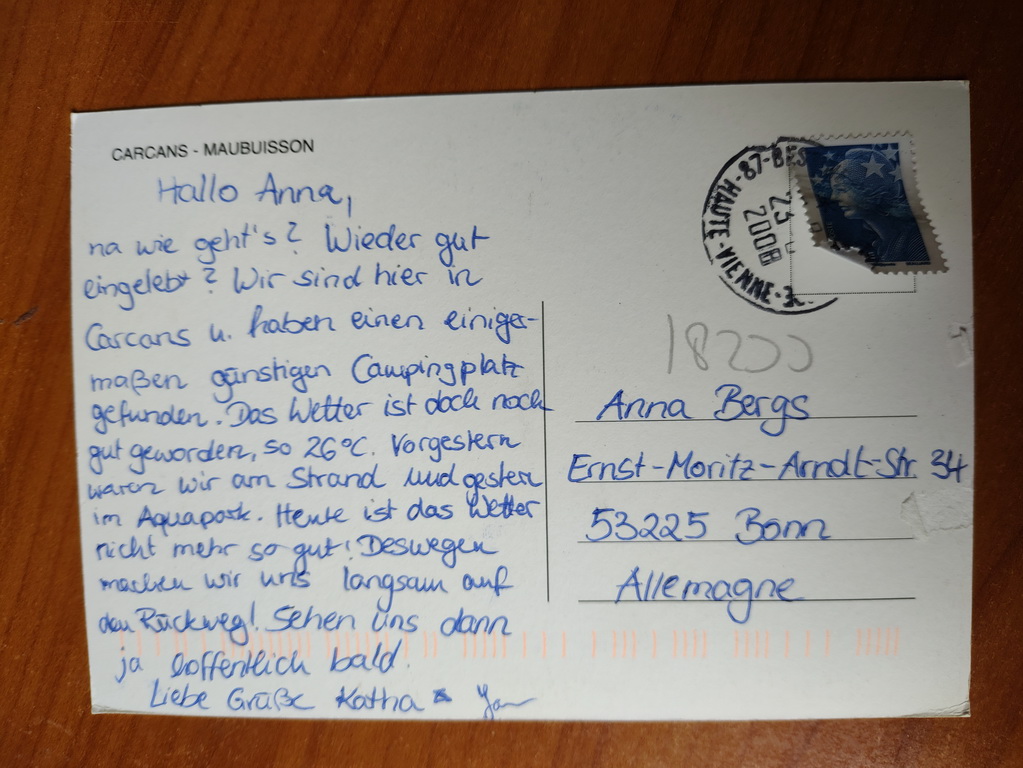 CARCANS - MAUBUISSON
Hallo Anna,
na wie geht's? Wieder gut
eingelebt? Wir sind hier in
Carcans u. haben einen einiger-
maßen günstigen Campingplatz
gefunden. Das Wetter ist doch noch
gut geworden, so 26°C. Vorgestern
waren wir am Strand und gestern
im Aquapark. Heute ist das Wetter
nicht mehr so gut! Deswegen
machen wir uns langsam auf
den Rückweg! Sehen uns dann
ja hoffentlich bald.
Liebe Grüße Katha & Jan
87-BES
HAUTE-VIENNE
2008
18200
Anna Bergs
Ernst-Moritz-Arndt-Str. 34
53225 Bonn
Allemagne